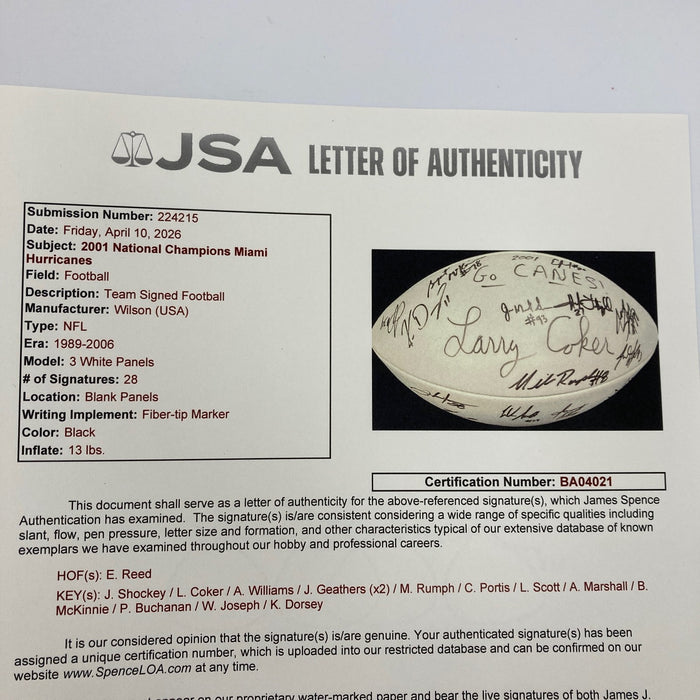 JSA LETTER OF AUTHENTICITY
Submission Number: 224215
Date: Friday, April 10, 2026
Subject: 2001 National Champions Miami
Hurricanes
Field: Football
Description: Team Signed Football
Manufacturer: Wilson (USA)
Type: NFL
Era: 1989-2006
Model: 3 White Panels
# of Signatures: 28
Location: Blank Panels
Writing Implement: Fiber-tip Marker
Color: Black
Inflate: 13 lbs.
2001
GO CANES!
#43
Larry Coker
Certification Number: BA04021
This document shall serve as a letter of authenticity for the above-referenced signature(s), which James Spence
Authentication has examined. The signature(s) is/are consistent considering a wide range of specific qualities including
slant, flow, pen pressure, letter size and formation, and other characteristics typical of our extensive database of known
exemplars we have examined throughout our hobby and professional careers.
HOF(s): E. Reed
KEY(s): J. Shockey / L. Coker / A. Williams / J. Geathers (x2) / M. Rumph / C. Portis / L. Scott / A. Marshall / B.
McKinnie / P. Buchanan / W. Joseph / K. Dorsey
It is our considered opinion that the signature(s) is/are genuine. Your authenticated signature(s) has been
assigned a unique certification number, which is uploaded into our restricted database and can be confirmed on our
website www.SpenceLOA.com at any time.
appear on our proprietary water-marked paper and bear the live signatures of both James J.